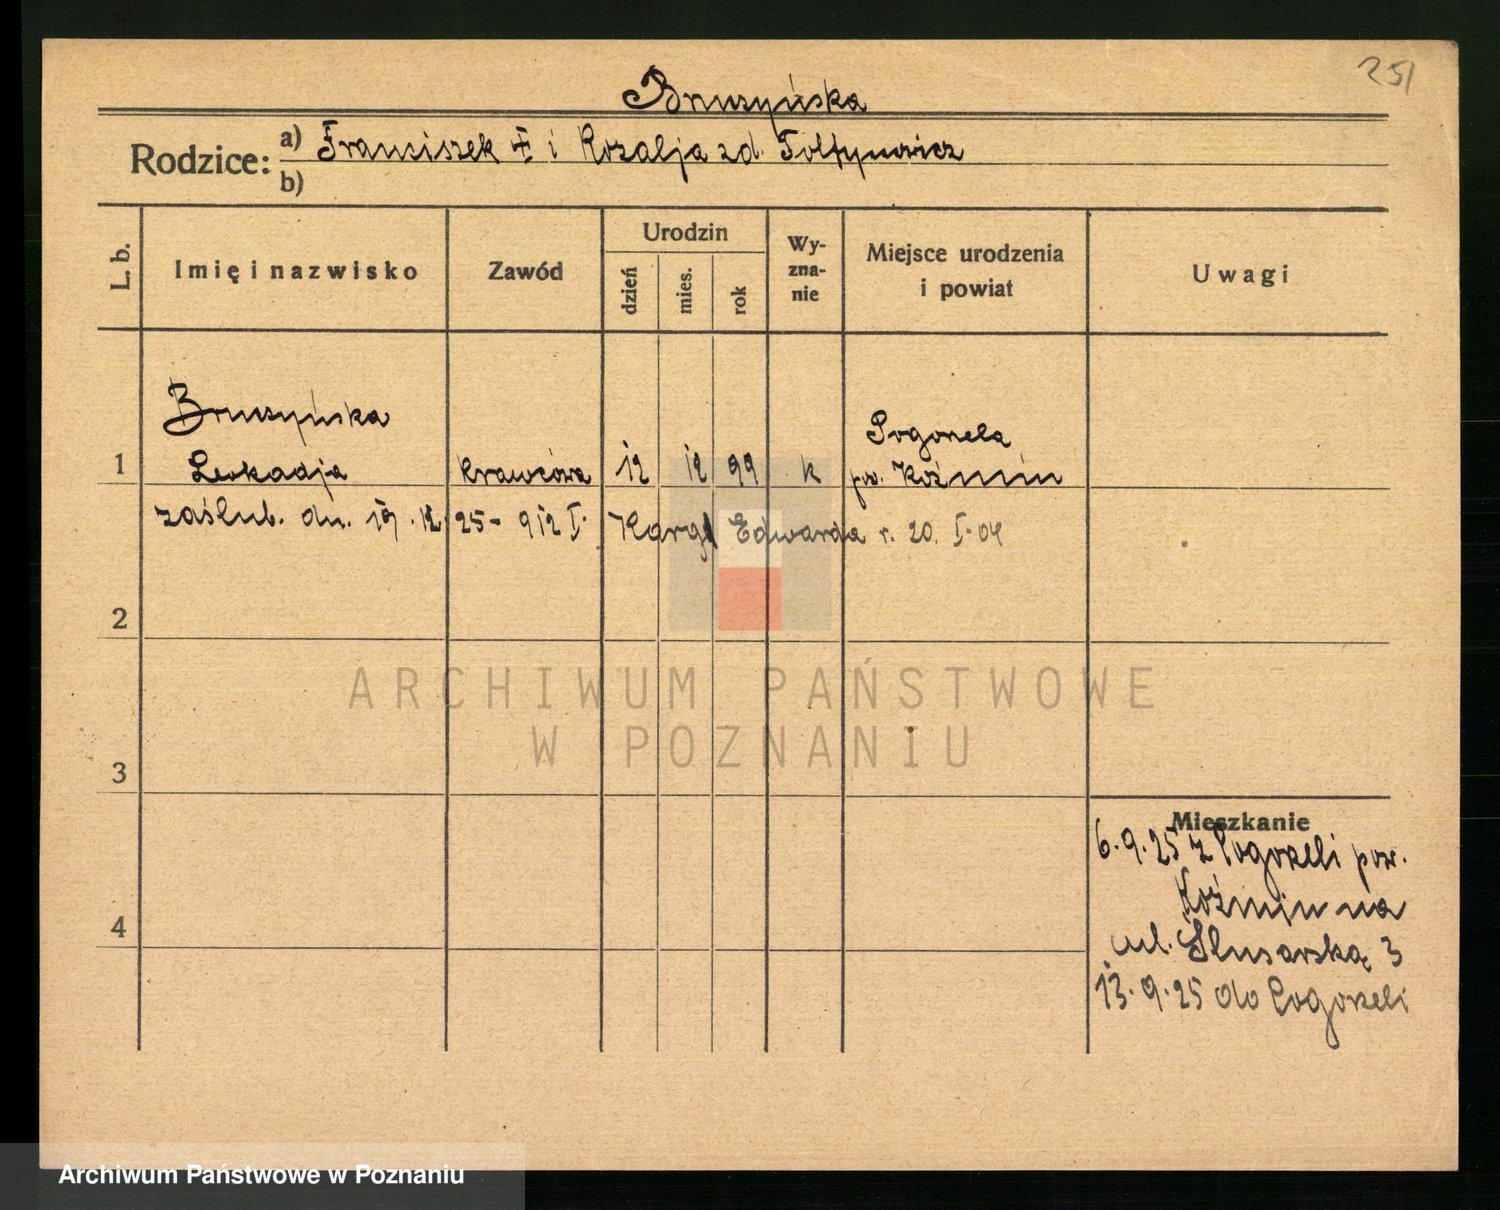 251
Bruszyńska
Rodzice: a) Franciszek ‡ i Rozalja zd. Tołtynowicz
b)
L. b. Imię i nazwisko Zawód Urodzin dzień mies. rok Wy-zna-nie Miejsce urodzenia i powiat Uwagi
Bruszyńska Pogorzela
1 Leokadja krawcowa 12 12 99 k pow. Koźmin
zaślub. dn. 19. 12. 25 - 912 I. Kargl Edwarda r. 20. I. 04
2
3
Mieszkanie
6.9.25 z Pogorzeli pow.
Koźmin na
4
ul. Ślusarską 3
13.9.25 do Pogorzeli
ARCHIWUM PAŃSTWOWE
W POZNANIU
Archiwum Państwowe w Poznaniu